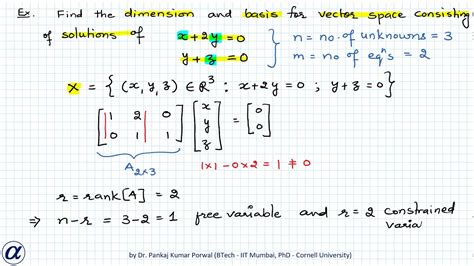 Ex. Find the dimension and basis for vector space consisting
of solutions of x+2y=0 n = no. of unknowns = 3
y+z=0 m = no of eqⁿs = 2
X = { (x,y,z) ∈ ℝ³ : x+2y=0 ; y+z=0 }
[1 2 0] [x] [0]
[0 1 1] [y] = [0]
[z]
A₂ₓ₃ 1×1-0×2=1≠0
r = rank[A] = 2
⇒ n-r = 3-2 = 1 free variable and r=2 constrained
varia
α by Dr. Pankaj Kumar Porwal (BTech - IIT Mumbai, PhD - Cornell University)